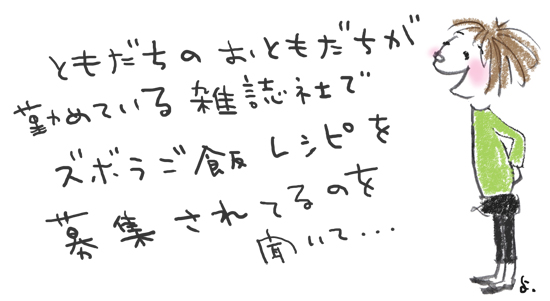 ともだちの おともだちが
勤めている 雑誌社で
ズボラご飯 レシピを
募集 されてるのを
聞いて・・・
よ.